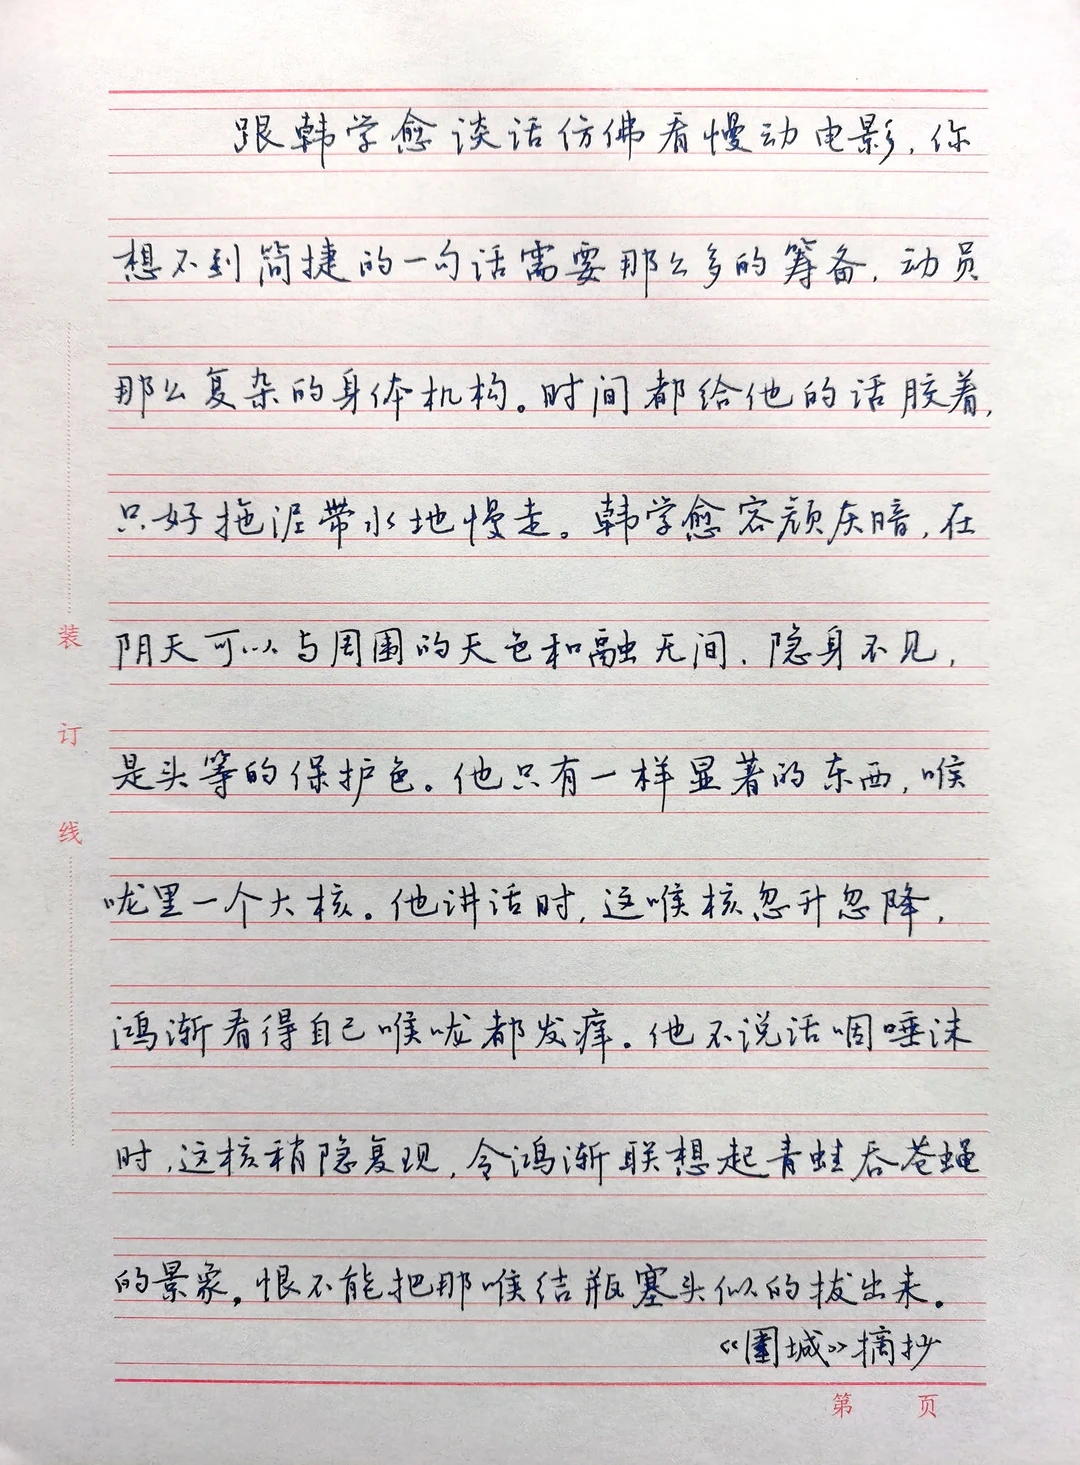 跟韩学愈谈话仿佛看慢动电影，你
想不到简捷的一句话需要那么多的筹备，动员
那么复杂的身体机构。时间都给他的话胶着，
只好拖泥带水地慢走。韩学愈容颜灰暗，在
阴天可以与周围的天色和融无间，隐身不见，
是头等的保护色。他只有一样显著的东西，喉
咙里一个大核。他讲话时，这喉核忽升忽降，
鸿渐看得自己喉咙都发痒。他不说话咽唾沫
时，这核稍隐复现，令鸿渐联想起青蛙吞苍蝇
的景象。恨不能把那喉结瓶塞头似的拔出来。
《围城》摘抄
装
订
线
第 页